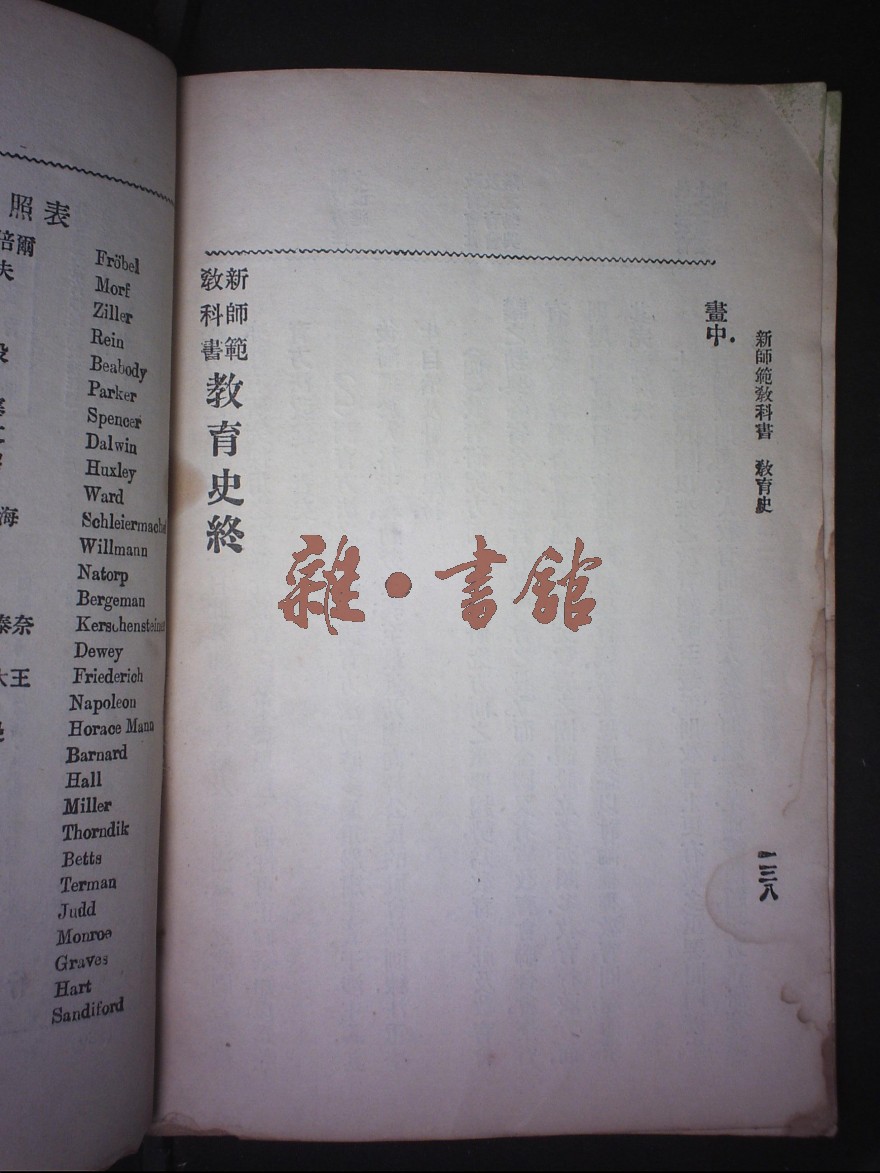 新師範教科書 教育史
一三八
畫中.
新師範
教科書
教育史終
雜·書館
照表
Fröbel
Morf
Ziller
Rein
Beabody
Parker
Spencer
Dalwin
Huxley
Ward
Willmann
Natorp
Bergeman
Dewey
Friederich
Napoleon
Horace Mann
Barnard
Hall
Miller
Thorndik
Betts
Terman
Judd
Monroe
Graves
Hart
Sandiford
爾
海
奈
大王